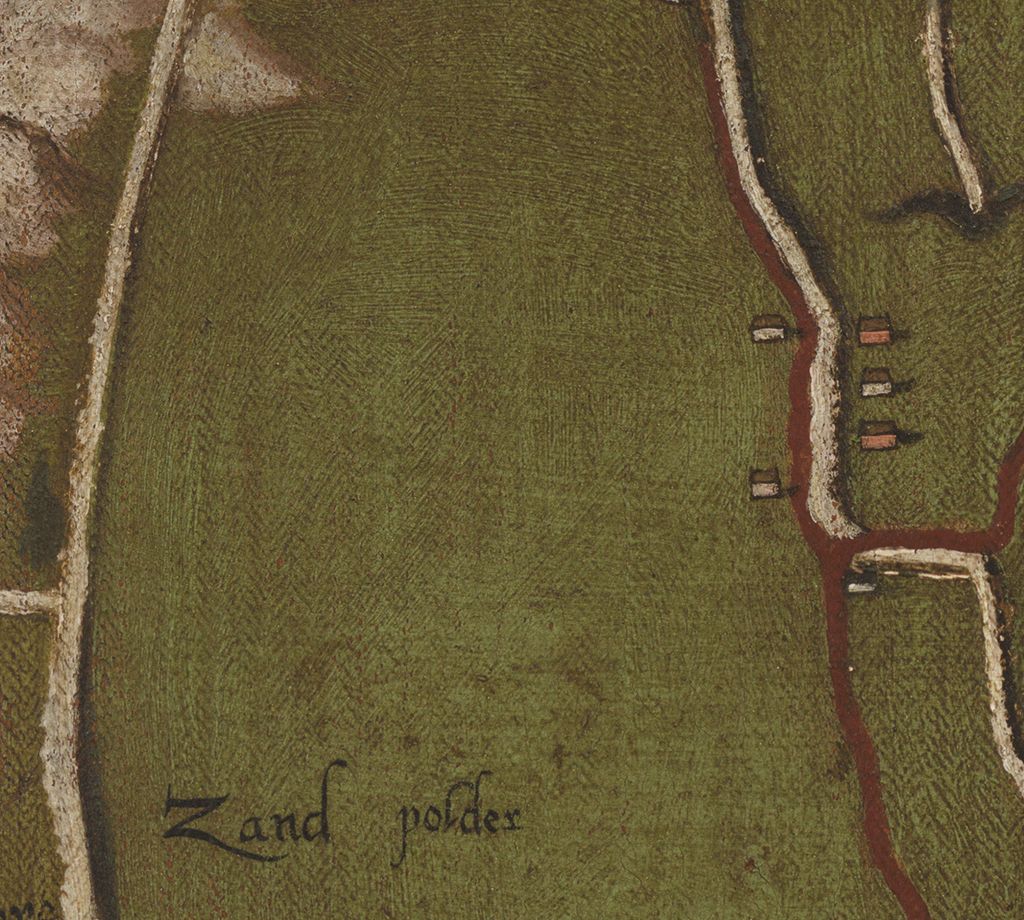 Zand polder